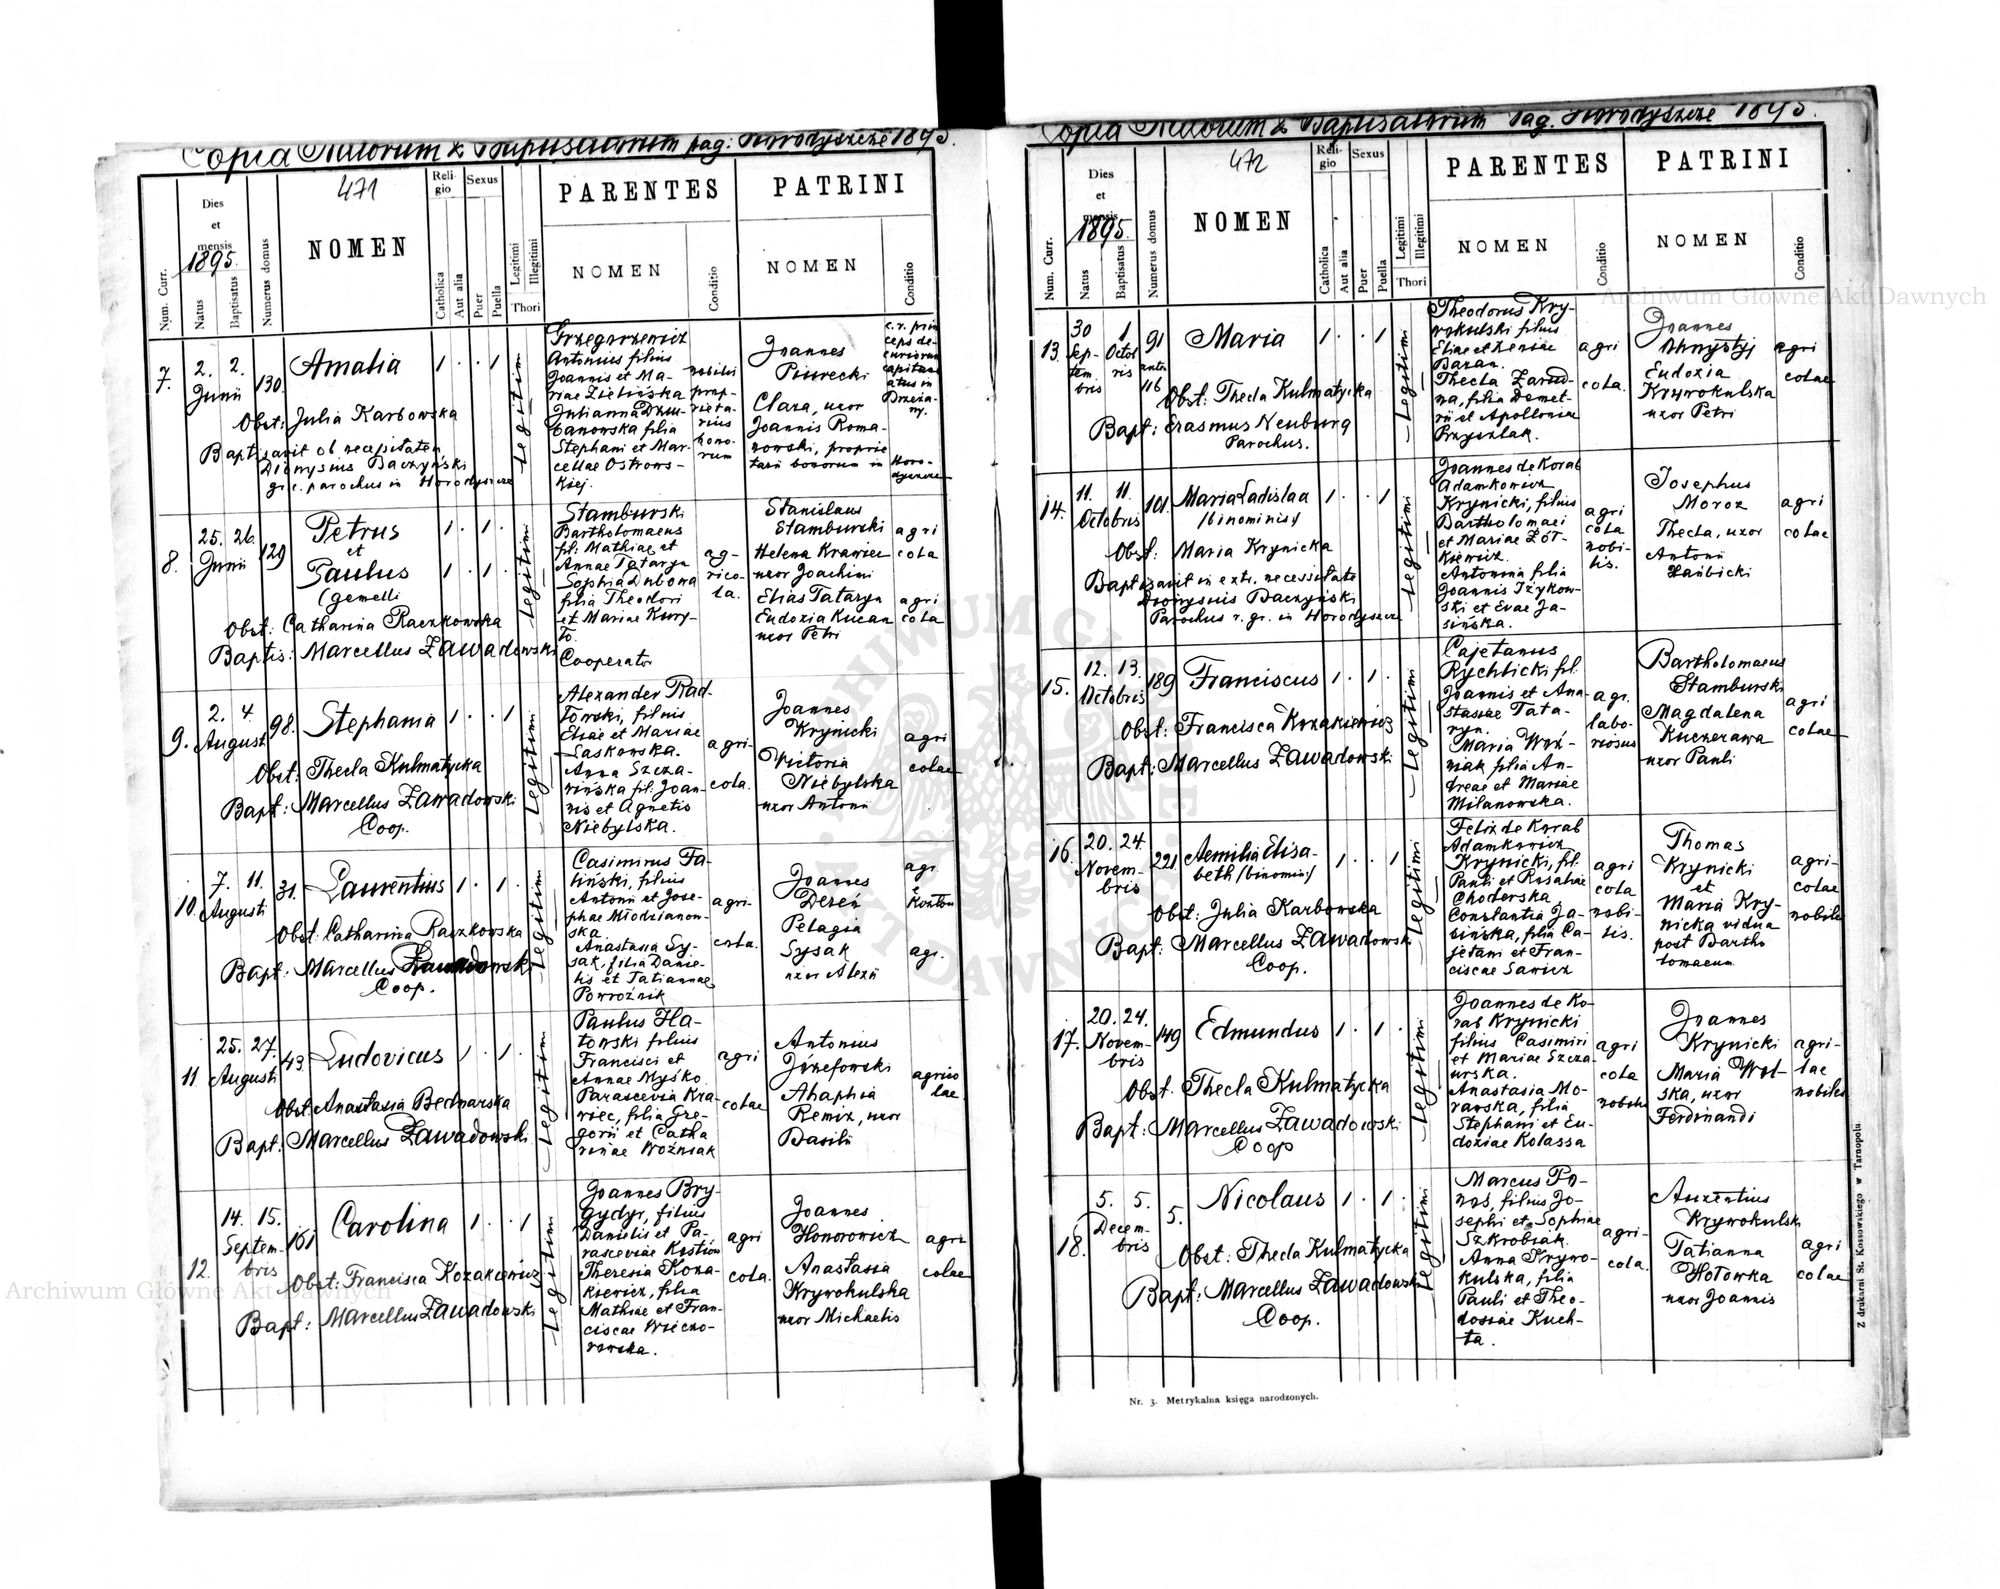 Copia Natorum & Baptisatorum pag: Horodyszcze 1895.
471
Num. Curr.
Dies
et
mensis
1895.
Natus
Baptisatus
Numerus domus
NOMEN
Reli-
gio
Catholica
Aut alia
Sexus
Puer
Puella
Legitimi
Illegitimi
Thori
PARENTES
NOMEN
Conditio
PATRINI
NOMEN
Conditio
7.
2. 2.
Junii
130.
Amalia
1 . . 1
Legitimi
Obst: Julia Karbowska
Baptisavit ob necessitatem
Dionysius Baczyński
gr. c. parochus in Horodyszcze
Grzegorzewicz
Antonius filius
Joannis et Ma-
riae Zielińska
Julianna Dziu-
banowska filia
Stephani et Mar-
cellae Ostrows-
kiej.
nobilis
prop-
rieta-
rius
bono-
rum
Joannes
Piurecki
Clara, uxor
Joannis Roma-
nowski, proprie
tarii bonorum in
c. r. prin
ceps de-
curiorum
capitan
atus in
Brzeża-
ny.
Horo-
dyszcze
8.
25. 26.
Junii
129
Petrus
et
Paulus
(gemelli
1 . 1 .
1 . 1 .
Legitimi
Obst: Catharina Raczkowska
Baptis: Marcellus Zawadowski
Cooperator
Stamburski
Bartholomaeus
fil: Mathiae et
Annae Tataryn
Sophia Dubowa
filia Theodori
et Mariae Kury-
ło.
ag-
rico-
la.
Stanislaus
Stamburski
Helena Krawiec
uxor Joachimi
Elias Tataryn
Eudoxia Kucan
uxor Petri
agri
cola
agri
cola
9.
2. 4.
August
98.
Stephania
1 . . 1
Legitimi
Obst: Thecla Kulmatycka
Bapt: Marcellus Zawadowski
Coop.
Alexander Rad-
łowski, filius
Eliae et Mariae
Laskowska.
Anna Szcza-
wińska fil. Joan-
nis et Agnetis
Niebylska.
agri-
cola.
Joannes
Krynicki
Victoria
Niebylska
uxor Antonii
agri
colae
10.
7. 11.
Augusti
31.
Laurentius
1 . 1 .
Legitimi
Obst: Catharina Raczkowska
Bapt: Marcellus Zawadowski
Coop.
Casimirus Fa-
liński, filius
Antonii et Jose-
phae Młodzianow-
ska.
Anastasia Sy-
sak, filia Danie-
lis et Tatiannae
Powroźnik
agri-
cola.
Joannes
Dereń
Pelagia
Sysak
uxor Alexii
agr.
agr.
11.
25. 27.
Augusti
43.
Ludovicus
1 . 1 .
Legitimi
Obst: Anastasia Bednarska
Bapt: Marcellus Zawadowski
Paulus Ha-
łowski filius
Francisci et
Annae Myśko
Parascevia Kra-
wiec, filia Gre-
gorii et Catha
rinae Woźniak
agri
colae
Antonius
Józefowski
Ahaphia
Remix, uxor
Basilii
agrico
lae.
12.
14. 15.
Septem-
bris
161
Carolina
1 . . 1
Legitimi
Obst: Francisca Kozakiewicz
Bapt: Marcellus Zawadowski
Joannes Bry-
gydyr, filius
Danielis et Pa-
rasceviae Kostiów
Theresia Koza-
kiewicz, filia
Mathiae et Fran-
ciscae Wieczo-
rowska.
agri
cola.
Joannes
Honorowicz
Anastasia
Krywokulska
uxor Michaelis
agri
colae
Copia Natorum & Baptisatorum Pag. Horodyszcze 1895.
472
Num. Curr.
Dies
et
mensis
1895.
Natus
Baptisatus
Numerus domus
NOMEN
Reli-
gio
Catholica
Aut alia
Sexus
Puer
Puella
Legitimi
Illegitimi
Thori
PARENTES
NOMEN
Conditio
PATRINI
NOMEN
Conditio
13.
30 1
Sep- Octob
tem ris
bris
91
antea
116
Maria
1 . . 1
Legitimi
Obst: Thecla Kulmatycka
Bapt: Erasmus Neuburg
Parochus.
Theodorus Kry-
wokulski filius
Eliae et Xeniae
Baran.
Thecla Zarud-
na, filia Demet-
rii et Apollonia
Przyszlak.
agri
cola.
Joannes
Ahnystyj
Eudoxia
Krywokulska
uxor Petri
agri
colae
14.
11. 11.
Octobris
101
Maria Ladislaa
/binominis/
1 . . 1
Legitimi
Obst: Maria Krynicka
Baptisavit in extr. necessitate
Dionysius Baczyński
Parochus r. gr. in Horodyszcze
Joannes de Korab
Adamkowicz
Krynicki, filius
Bartholomaei
et Mariae Żół-
kiewicz.
Antonina filia
Joannis Iżykow-
ski et Evae Ja-
sińska.
agri
cola
nobi-
lis.
Josephus
Moroz
Thecla, uxor
Antonii
Hańbicki
agri
colae
15.
12. 13.
Octobris
189
Franciscus
1 . 1 .
Legitimi
Obst: Francisca Kozakiewicz
Bapt: Marcellus Zawadowski
Cajetanus
Rychlicki fil.
Joannis et Ana-
stasiae Tata-
ryn.
Maria Woź-
niak filia An-
dreae et Mariae
Milanowska.
agr.
labo-
riosus
Bartholomaeus
Stamburski
Magdalena
Kuczerawa
uxor Pauli
agri
colae
16.
20. 24.
Novem-
bris
221
Aemilia Elisa-
beth /binomin:/
1 . . 1
Legitimi
Obst: Julia Karbowska
Bapt: Marcellus Zawadowski
Coop.
Felix de Korab
Adamkowicz
Krynicki, fil.
Pauli et Rosaliae
Choderska
Constantia Ja-
bińska, filia Ca-
jetani et Fran-
ciscae Sawicz
agri
cola
nobi-
lis.
Thomas
Krynicki
et
Maria Kry-
nicka vidua
post Bartho
lomaeum
agri-
colae
nobiles
17.
20. 24.
Novem-
bris
149
Edmundus
1 . 1 .
Legitimi
Obst. Thecla Kulmatycka
Bapt: Marcellus Zawadowski
Coop
Joannes de Ko-
rab Krynicki
filius Casimiri
et Mariae Szcza-
urska.
Anastasia Mo-
rawska, filia
Stephani et Eu-
doxiae Kolassa
agri
cola
nobilis
Joannes
Krynicki
Maria Wol-
ska, uxor
Ferdinandi
agri-
lae
nobiles
18.
5. 5.
Decem-
bris
5.
Nicolaus
1 . 1 .
Legitimi
Obst: Thecla Kulmatycka
Bapt: Marcellus Zawadowski
Coop.
Marcus Po-
nos, filius Jo-
sephi et Sophiae
Szkrobiak.
Anna Krywo-
kulska, filia
Pauli et Theo-
dosiae Kuch-
ta.
agri-
cola.
Auxentius
Krywokulski
Tatianna
Hołowka
uxor Joannis
agri
colae
Nr. 3. Metrykalna księga narodzonych.
Z drukarni St. Kossowskiego w Tarnopolu.
Archiwum Główne Akt Dawnych
Archiwum Główne Akt Dawnych
ARCHIWUM GŁÓWNE
AKT DAWNYCH